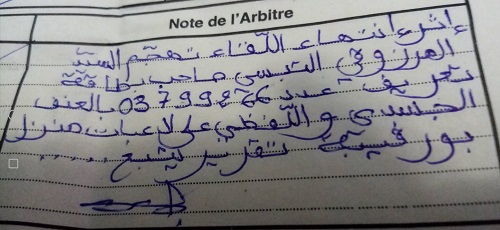 Note de l'Arbitre
إثر انتهاء اللقاء تهجم السيد
المرزوقي التبسي صاحب بطاقة
تعريف عدد 03799266 بالعنف
الجسدي واللفظي على لاعبات منزل
بورقيبة تقرير يتبع .....